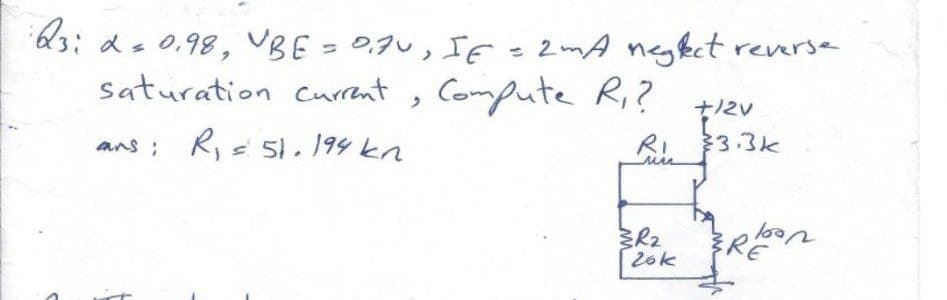 Q3: α = 0.98, VBE = 0.7v, IE = 2mA neglect reverse
saturation current, Compute R1?
ans: R1 = 51.194 kΩ
+12V
R1
3.3k
R2
20k
RE
100Ω